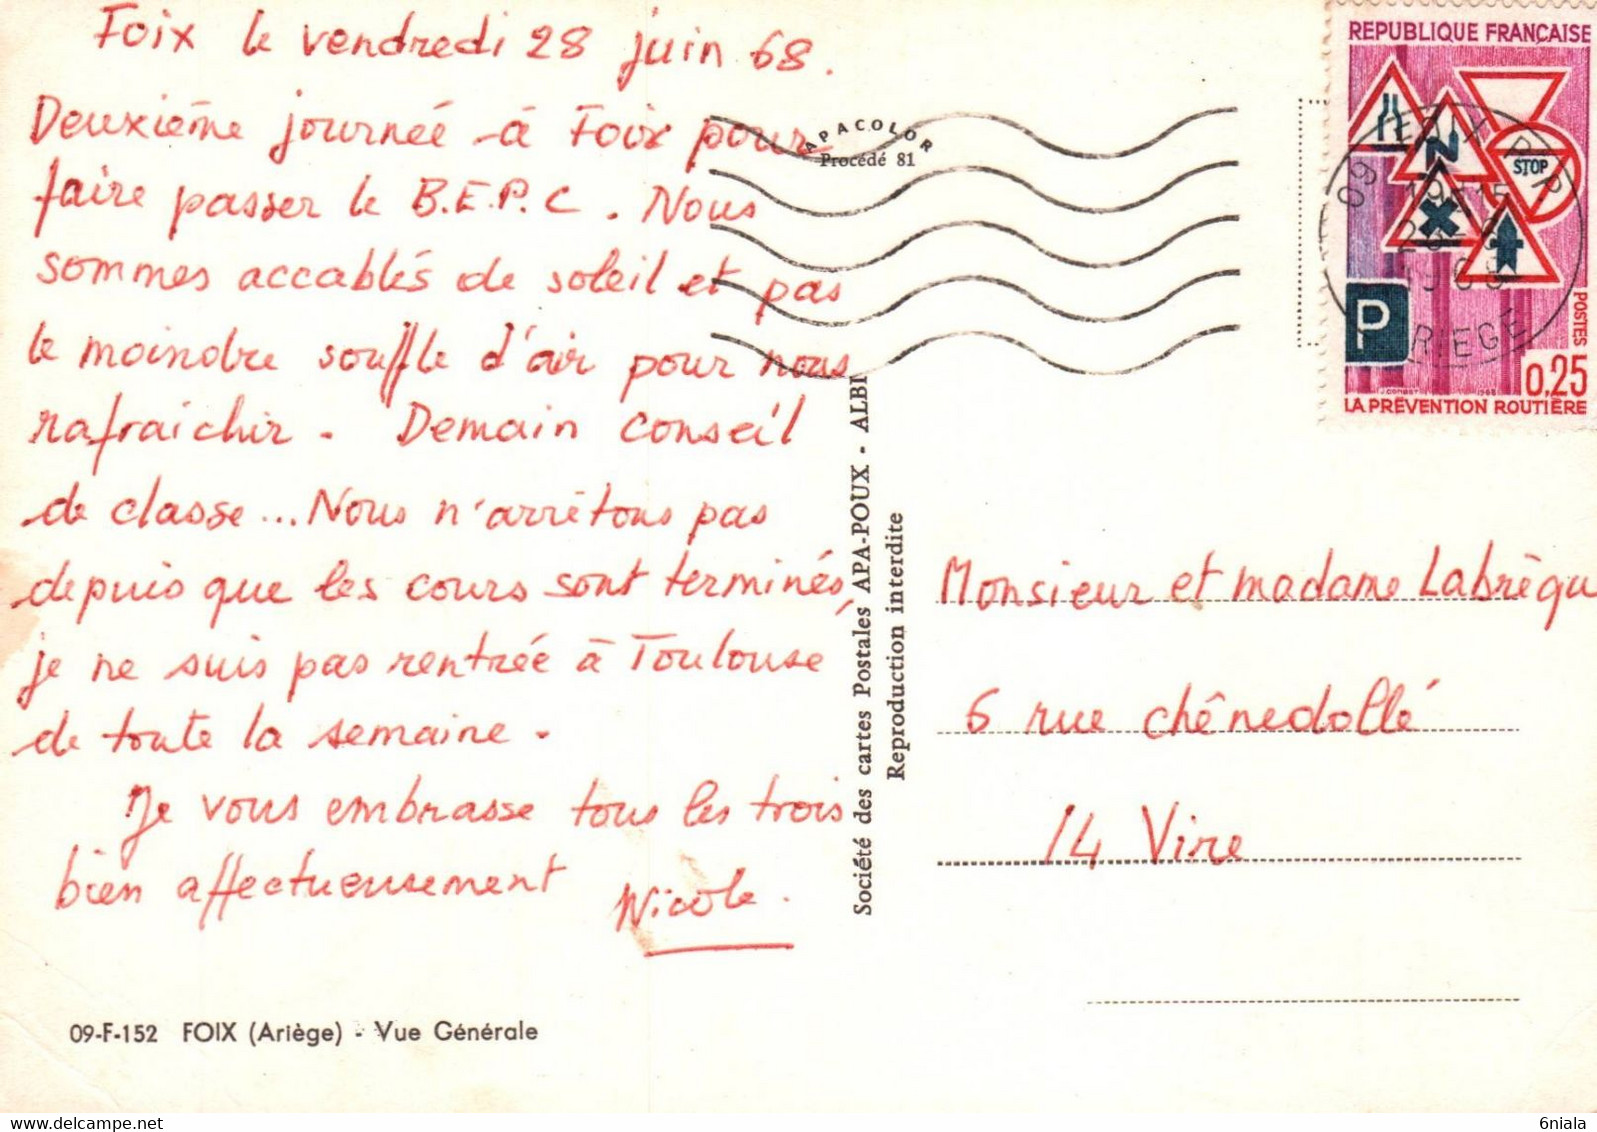 Foix le vendredi 28 juin 68.
Deuxième journée à Foix pour
faire passer le B.E.P.C. Nous
sommes accablés de soleil et pas
le moindre souffle d'air pour nous
rafraîchir. Demain conseil
de classe... Nous n'arrêtons pas
depuis que les cours sont terminés,
je ne suis pas rentrée à Toulouse
de toute la semaine.
Je vous embrasse tous les trois
bien affectueusement
Nicole.
09-F-152 FOIX (Ariège) - Vue Générale
APACOLOR
Procédé 81
Société des cartes Postales APA-POUX - ALBI
Reproduction interdite
REPUBLIQUE FRANÇAISE
STOP
P
POSTES
0,25
LA PRÉVENTION ROUTIÈRE
09 FOIX R.P.
ARIEGE
Monsieur et madame Labrèqu
6 rue Chênedollé
14 Vire
6niala